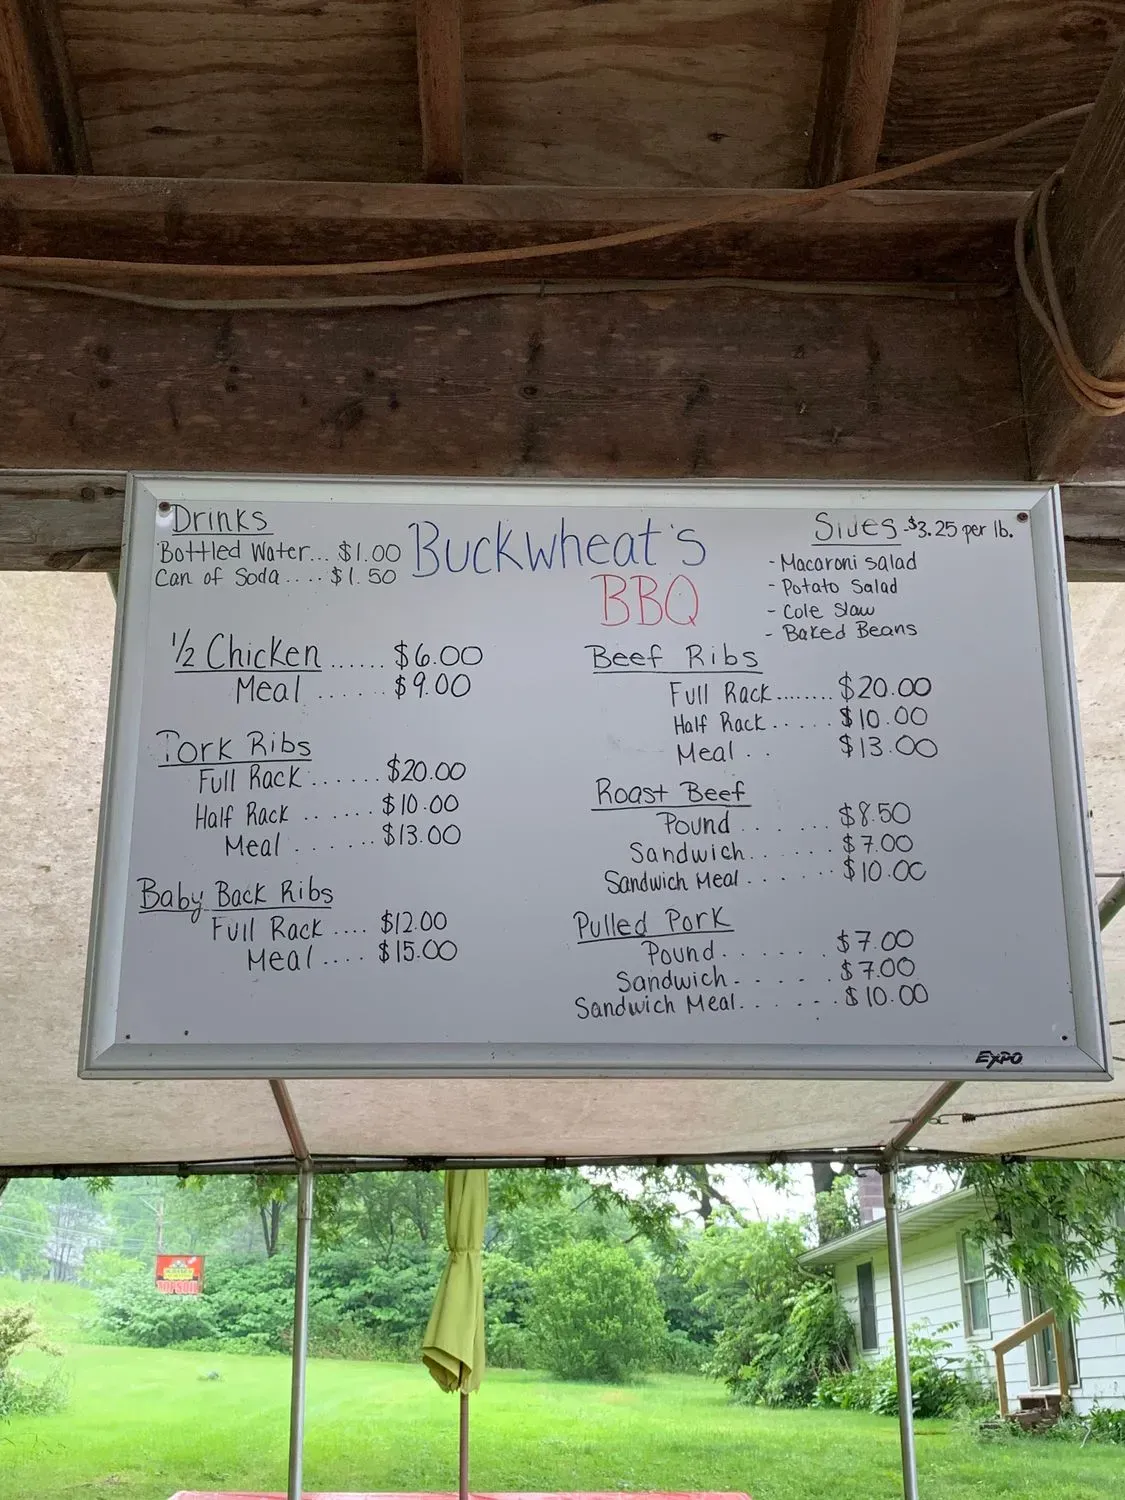 Drinks
Bottled Water... $1.00
Can of Soda.... $1.50
Buckwheat's
BBQ
Sides - $3.25 per lb.
- Macaroni salad
- Potato Salad
- Cole Slaw
- Baked Beans
1/2 Chicken ...... $6.00
Meal ...... $9.00
Pork Ribs
Full Rack ...... $20.00
Half Rack ...... $10.00
Meal ....... $13.00
Baby Back Ribs
Full Rack .... $12.00
Meal .... $15.00
Beef Ribs
Full Rack........ $20.00
Half Rack...... $10.00
Meal .. $13.00
Roast Beef
Pound ...... $8.50
Sandwich...... $7.00
Sandwich Meal ...... $10.00
Pulled Pork
Pound ...... $7.00
Sandwich...... $7.00
Sandwich Meal....... $10.00
EXPO
TOPSOIL